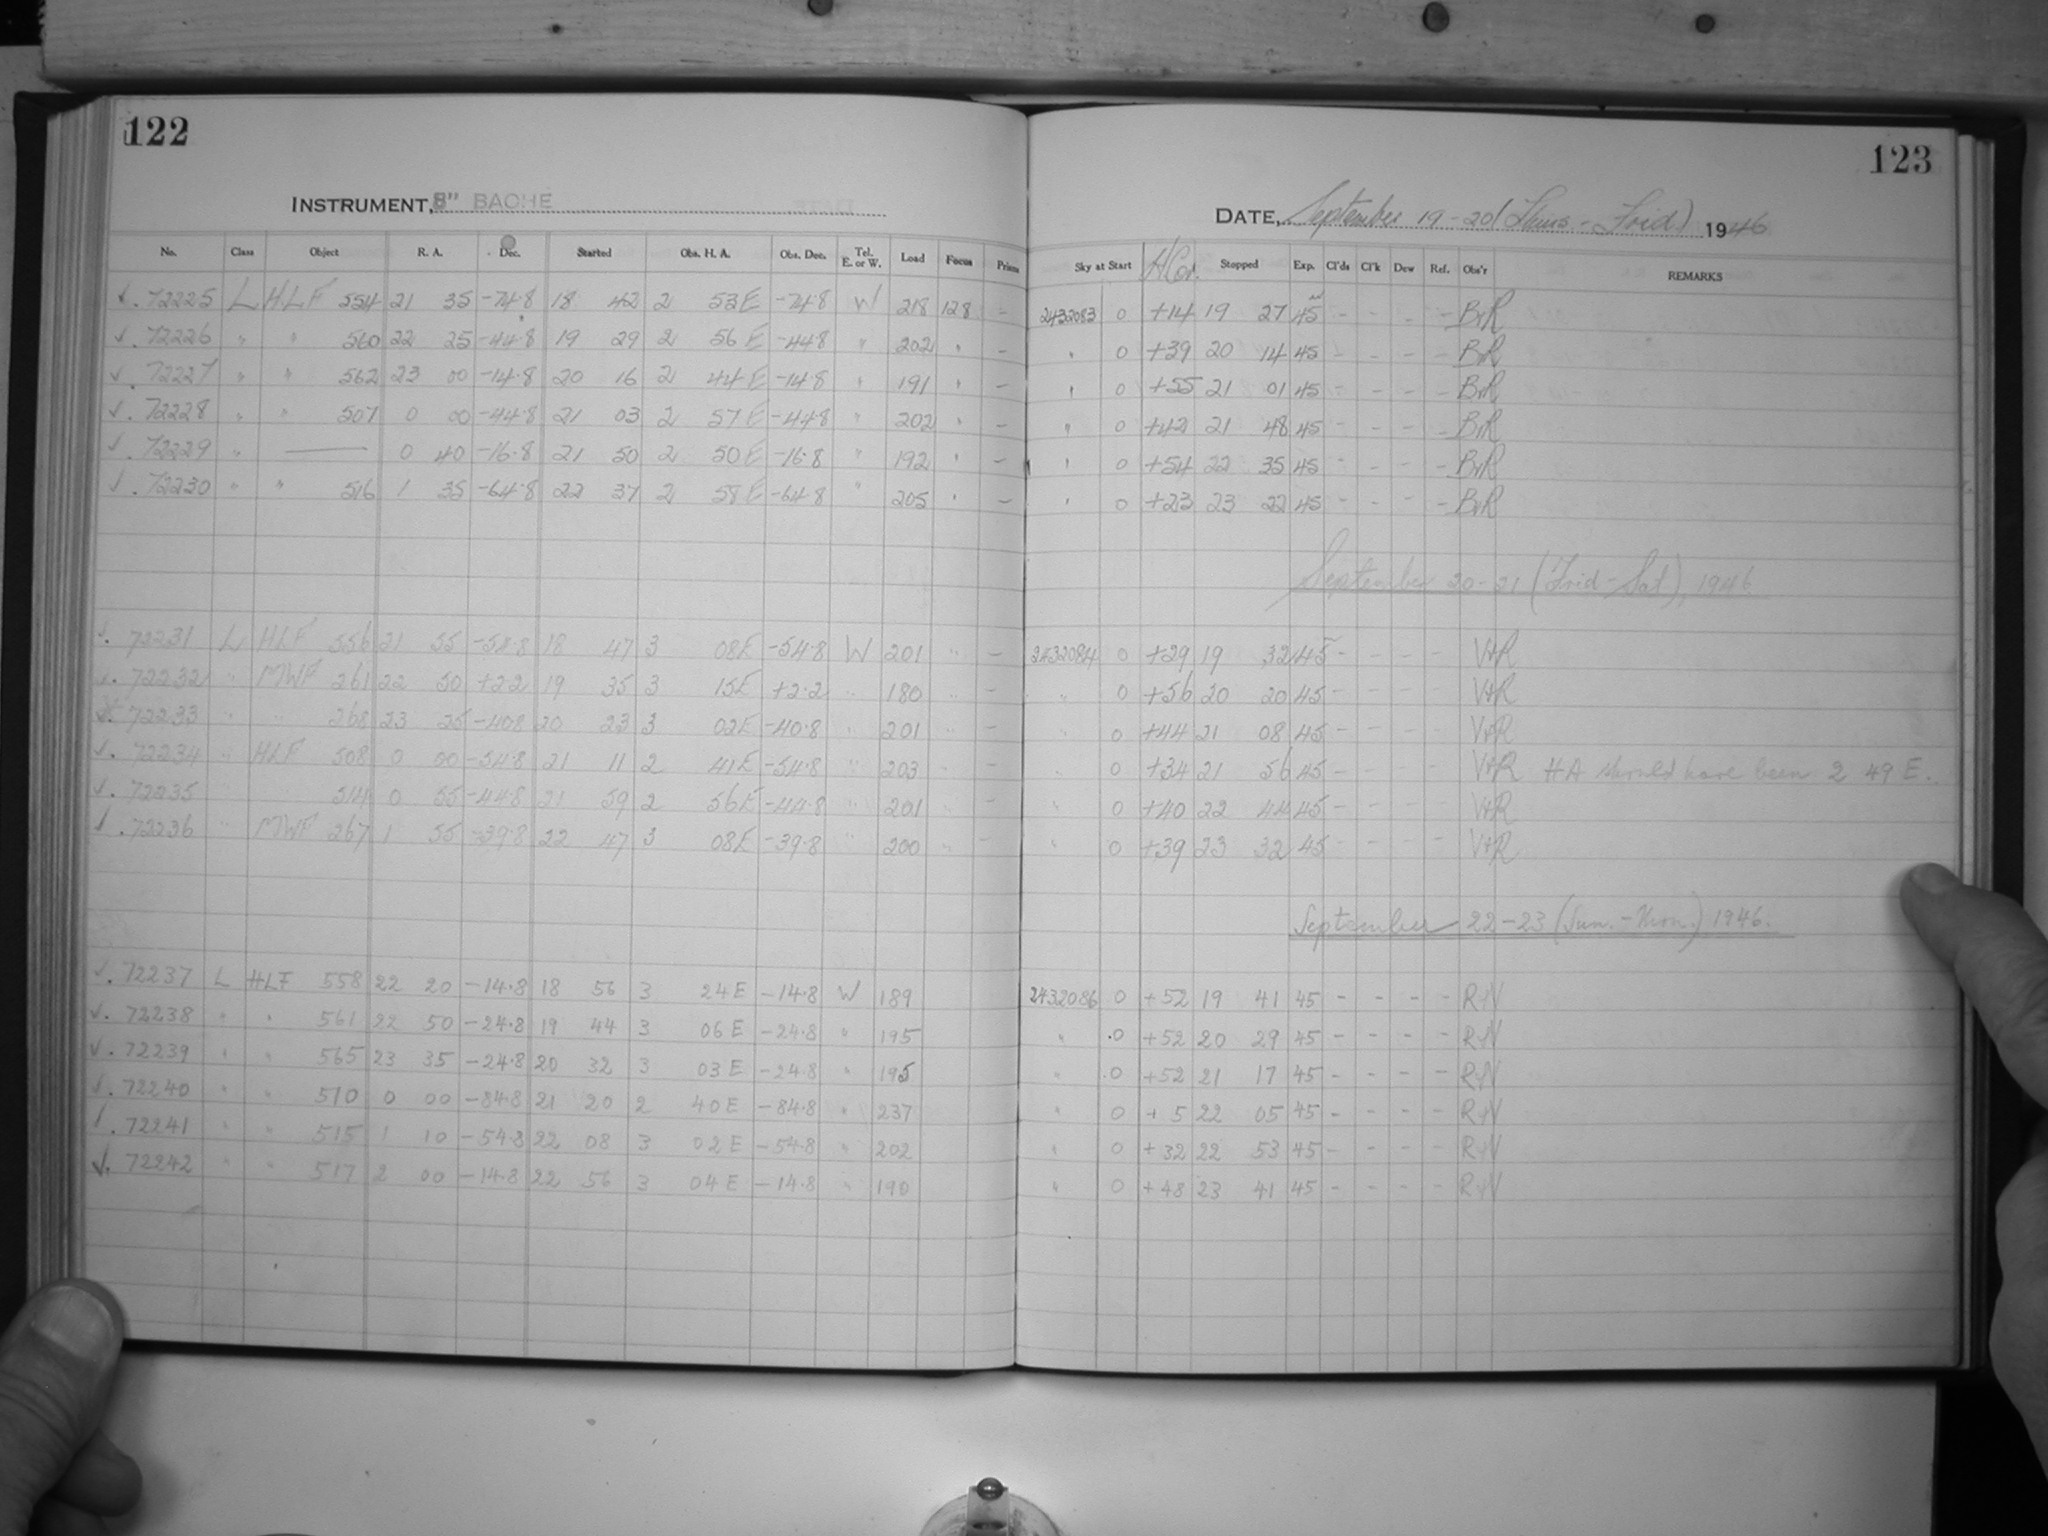 122
123
INSTRUMENT, 8" BACHE
DATE, September 19-20 (Thurs-Frid) 1946
No. Class Object R. A. Dec. Started Obs. H. A. Obs. Dec. Tel. E. or W. Load Focus Prism Sky at Start H Cor. Stopped Exp. Cl'ds Cl'k Dew Ref. Obs'r REMARKS
√. 72225 L HLF 554 21 35 -74.8 18 42 2 53E -74.8 W 218 128 - 2432083 0 +14 19 27 45 - - - - BrR
√. 72226 " " 560 22 25 -44.8 19 29 2 56E -44.8 " 202 " - " 0 +39 20 14 45 - - - - BrR
√. 72227 " " 562 23 00 -14.8 20 16 2 44E -14.8 " 191 " - " 0 +55 21 01 45 - - - - BrR
√. 72228 " " 507 0 00 -44.8 21 03 2 57E -44.8 " 202 " - " 0 +42 21 48 45 - - - - BrR
√. 72229 " — 0 40 -16.8 21 50 2 50E -16.8 " 192 " - " 0 +54 22 35 45 - - - - BrR
√. 72230 " " 516 1 35 -64.8 22 37 2 58E -64.8 " 205 " - " 0 +23 23 22 45 - - - - BrR
September 20-21 (Frid-Sat), 1946
√. 72231 L HLF 556 21 55 -54.8 18 47 3 08E -54.8 W 201 " - 2432084 0 +29 19 32 45 - - - - V+R
√. 72232 " MWF 261 22 50 +2.2 19 35 3 15E +2.2 " 180 " - " 0 +56 20 20 45 - - - - V+R
72233 " " 268 23 25 -40.8 20 23 3 02E -40.8 " 201 " - " 0 +44 21 08 45 - - - - V+R
√. 72234 " HLF 508 0 00 -54.8 21 11 2 41E -54.8 " 203 " - " 0 +34 21 56 45 - - - - V+R HA should have been 2 49 E.
√. 72235 " 514 0 55 -44.8 21 59 2 56E -44.8 " 201 " - " 0 +40 22 44 45 - - - - V+R
√. 72236 " MWF 267 1 55 -39.8 22 47 3 08E -39.8 " 200 " - " 0 +39 23 32 45 - - - - V+R
September 22-23 (Sun.-Mon.) 1946.
√. 72237 L HLF 558 22 20 -14.8 18 56 3 24E -14.8 W 189 2432086 0 +52 19 41 45 - - - - R+V
√. 72238 " " 561 22 50 -24.8 19 44 3 06E -24.8 " 195 " 0 +52 20 29 45 - - - - R+V
√. 72239 " " 565 23 35 -24.8 20 32 3 03E -24.8 " 195 " 0 +52 21 17 45 - - - - R+V
√. 72240 " " 510 0 00 -84.8 21 20 2 40E -84.8 " 237 " 0 +5 22 05 45 - - - - R+V
√. 72241 " " 515 1 10 -54.8 22 08 3 02E -54.8 " 202 " 0 +32 22 53 45 - - - - R+V
√. 72242 " " 517 2 00 -14.8 22 56 3 04E -14.8 " 190 " 0 +48 23 41 45 - - - - R+V